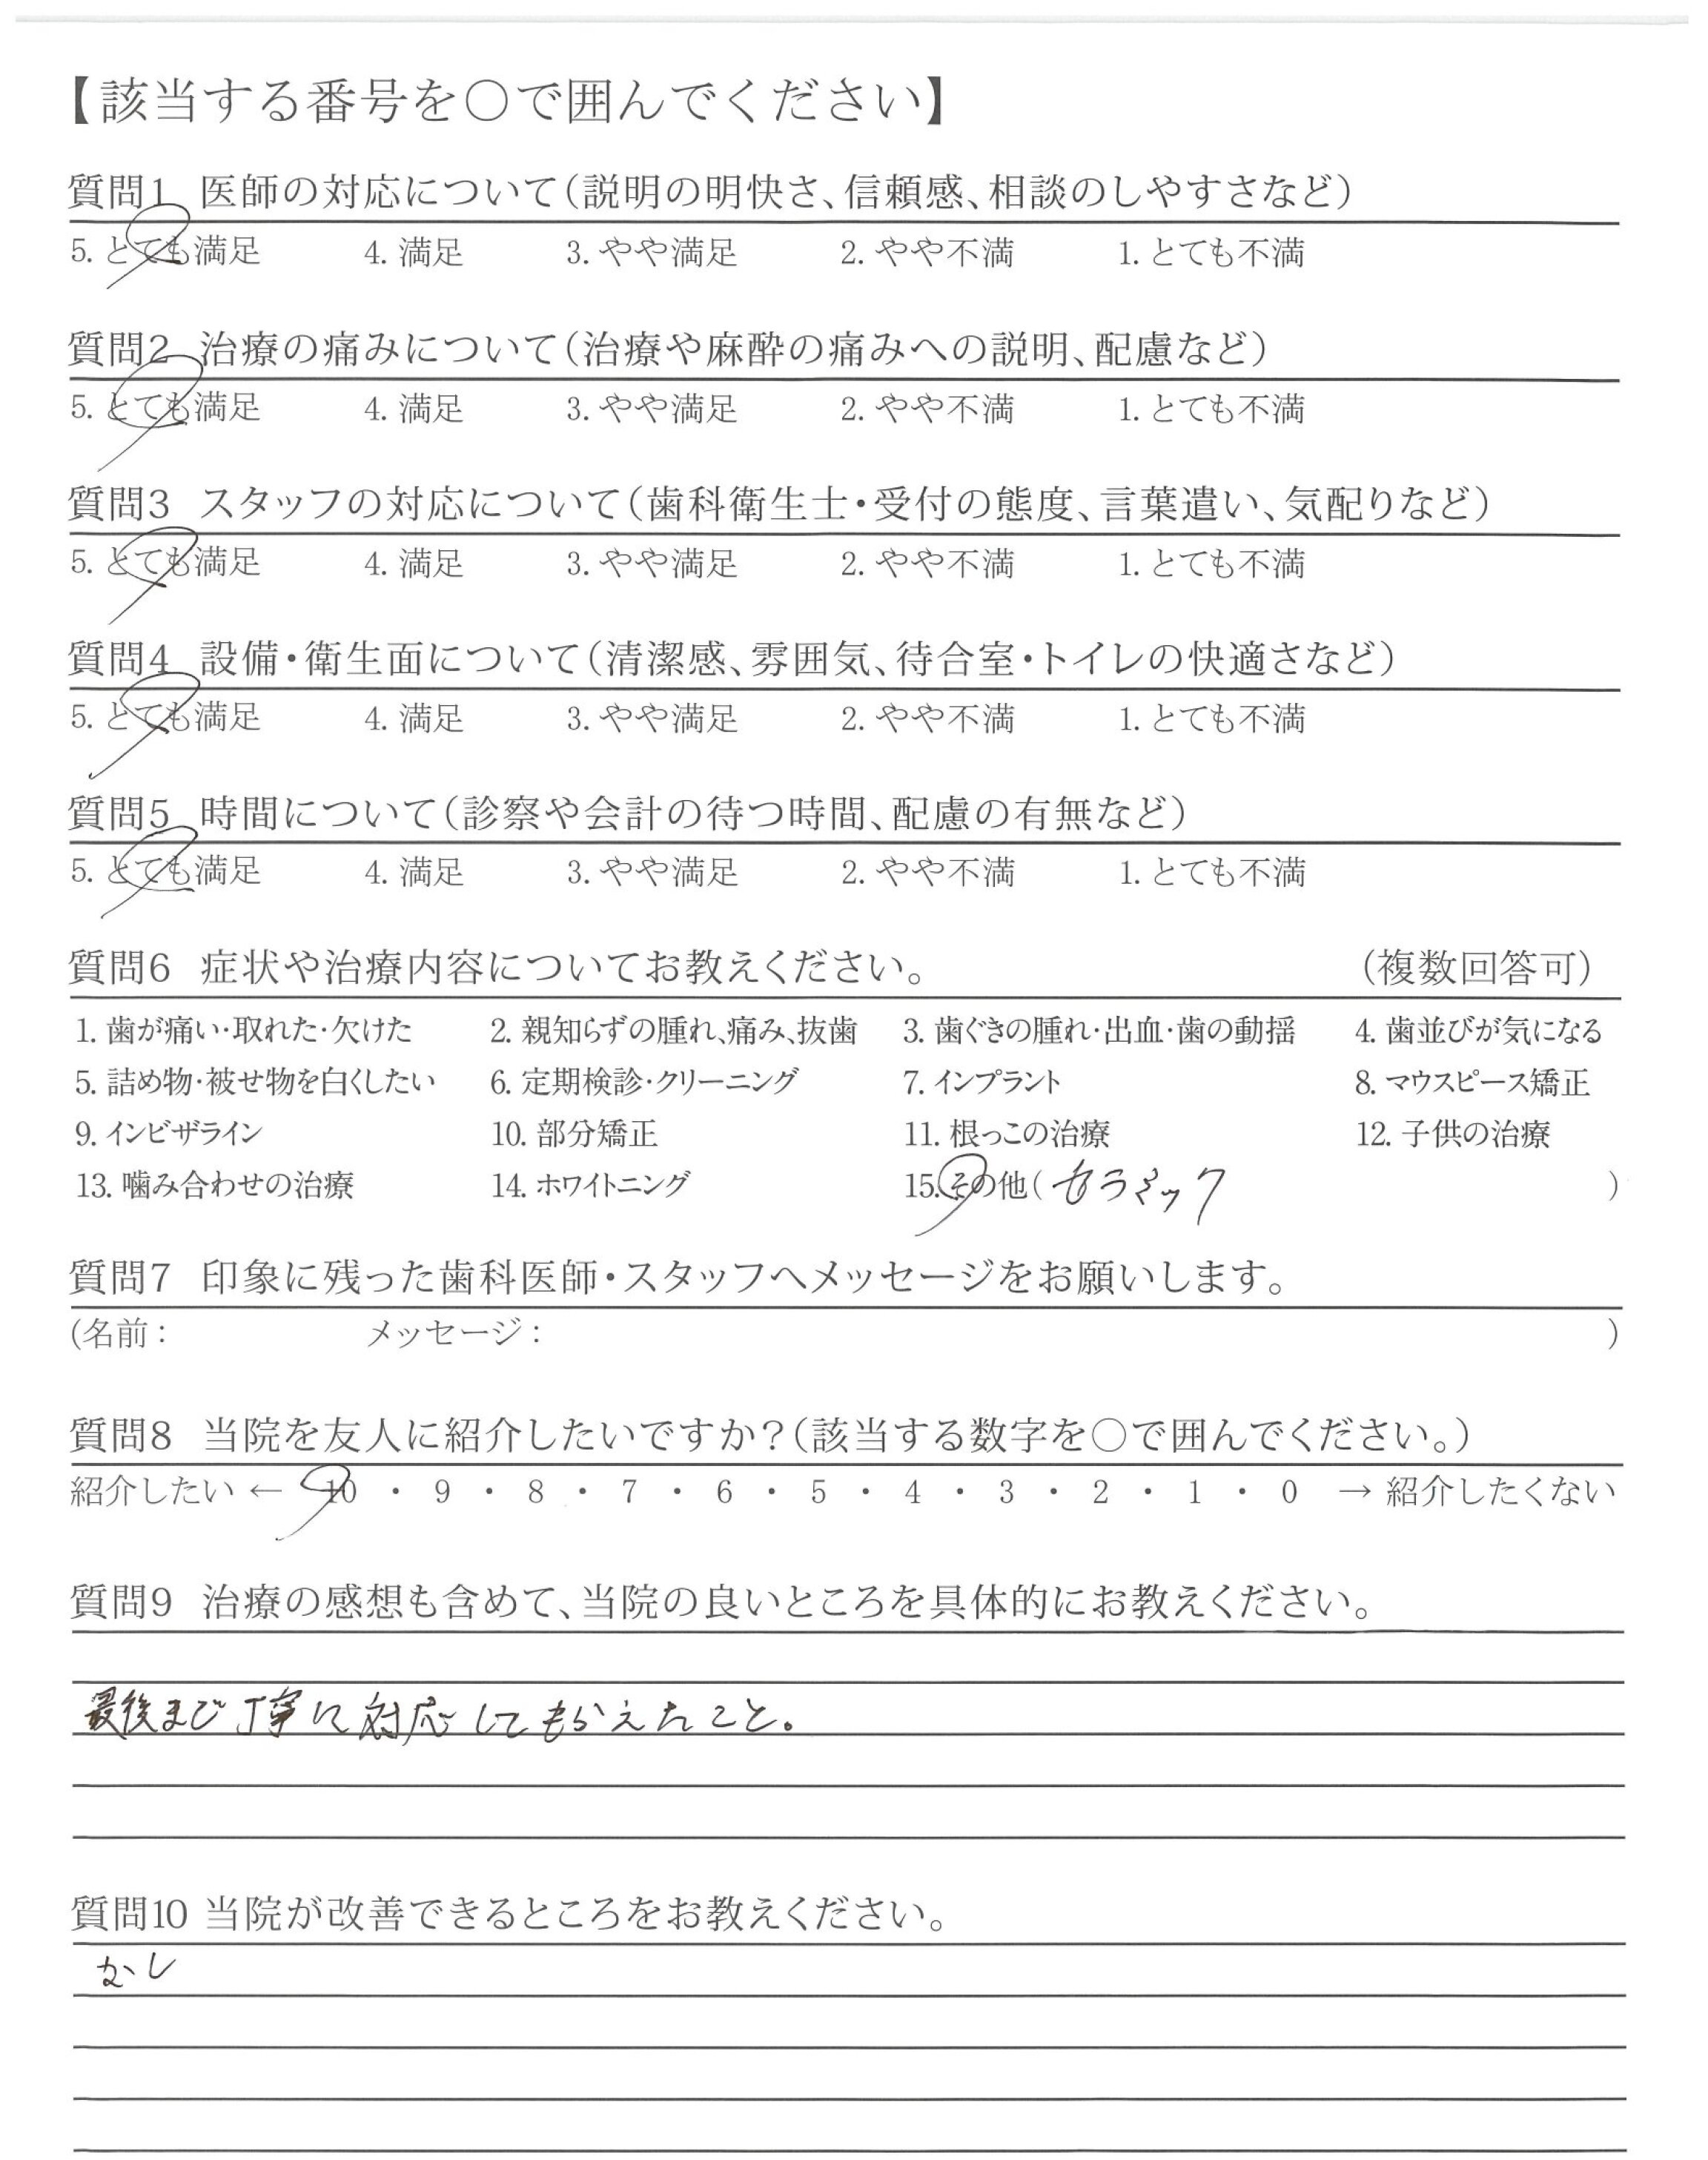 【該当する番号を〇で囲んでください】
質問1 医師の対応について(説明の明快さ、信頼感、相談のしやすさなど)
5. とても満足 4. 満足 3. やや満足 2. やや不満 1. とても不満
質問2 治療の痛みについて(治療や麻酔の痛みへの説明、配慮など)
5. とても満足 4. 満足 3. やや満足 2. やや不満 1. とても不満
質問3 スタッフの対応について(歯科衛生士・受付の態度、言葉遣い、気配りなど)
5. とても満足 4. 満足 3. やや満足 2. やや不満 1. とても不満
質問4 設備・衛生面について(清潔感、雰囲気、待合室・トイレの快適さなど)
5. とても満足 4. 満足 3. やや満足 2. やや不満 1. とても不満
質問5 時間について(診察や会計の待つ時間、配慮の有無など)
5. とても満足 4. 満足 3. やや満足 2. やや不満 1. とても不満
質問6 症状や治療内容についてお教えください。 (複数回答可)
1. 歯が痛い・取れた・欠けた 2. 親知らずの腫れ、痛み、抜歯 3. 歯ぐきの腫れ・出血・歯の動揺 4. 歯並びが気になる
5. 詰め物・被せ物を白くしたい 6. 定期検診・クリーニング 7. インプラント 8. マウスピース矯正
9. インビザライン 10. 部分矯正 11. 根っこの治療 12. 子供の治療
13. 噛み合わせの治療 14. ホワイトニング 15. その他( セラミック )
質問7 印象に残った歯科医師・スタッフへメッセージをお願いします。
(名前: メッセージ: )
質問8 当院を友人に紹介したいですか?(該当する数字を〇で囲んでください。)
紹介したい ← 10 ・ 9 ・ 8 ・ 7 ・ 6 ・ 5 ・ 4 ・ 3 ・ 2 ・ 1 ・ 0 → 紹介したくない
質問9 治療の感想も含めて、当院の良いところを具体的にお教えください。
最後まで丁寧に対応してもらえたこと。
質問10 当院が改善できるところをお教えください。
なし